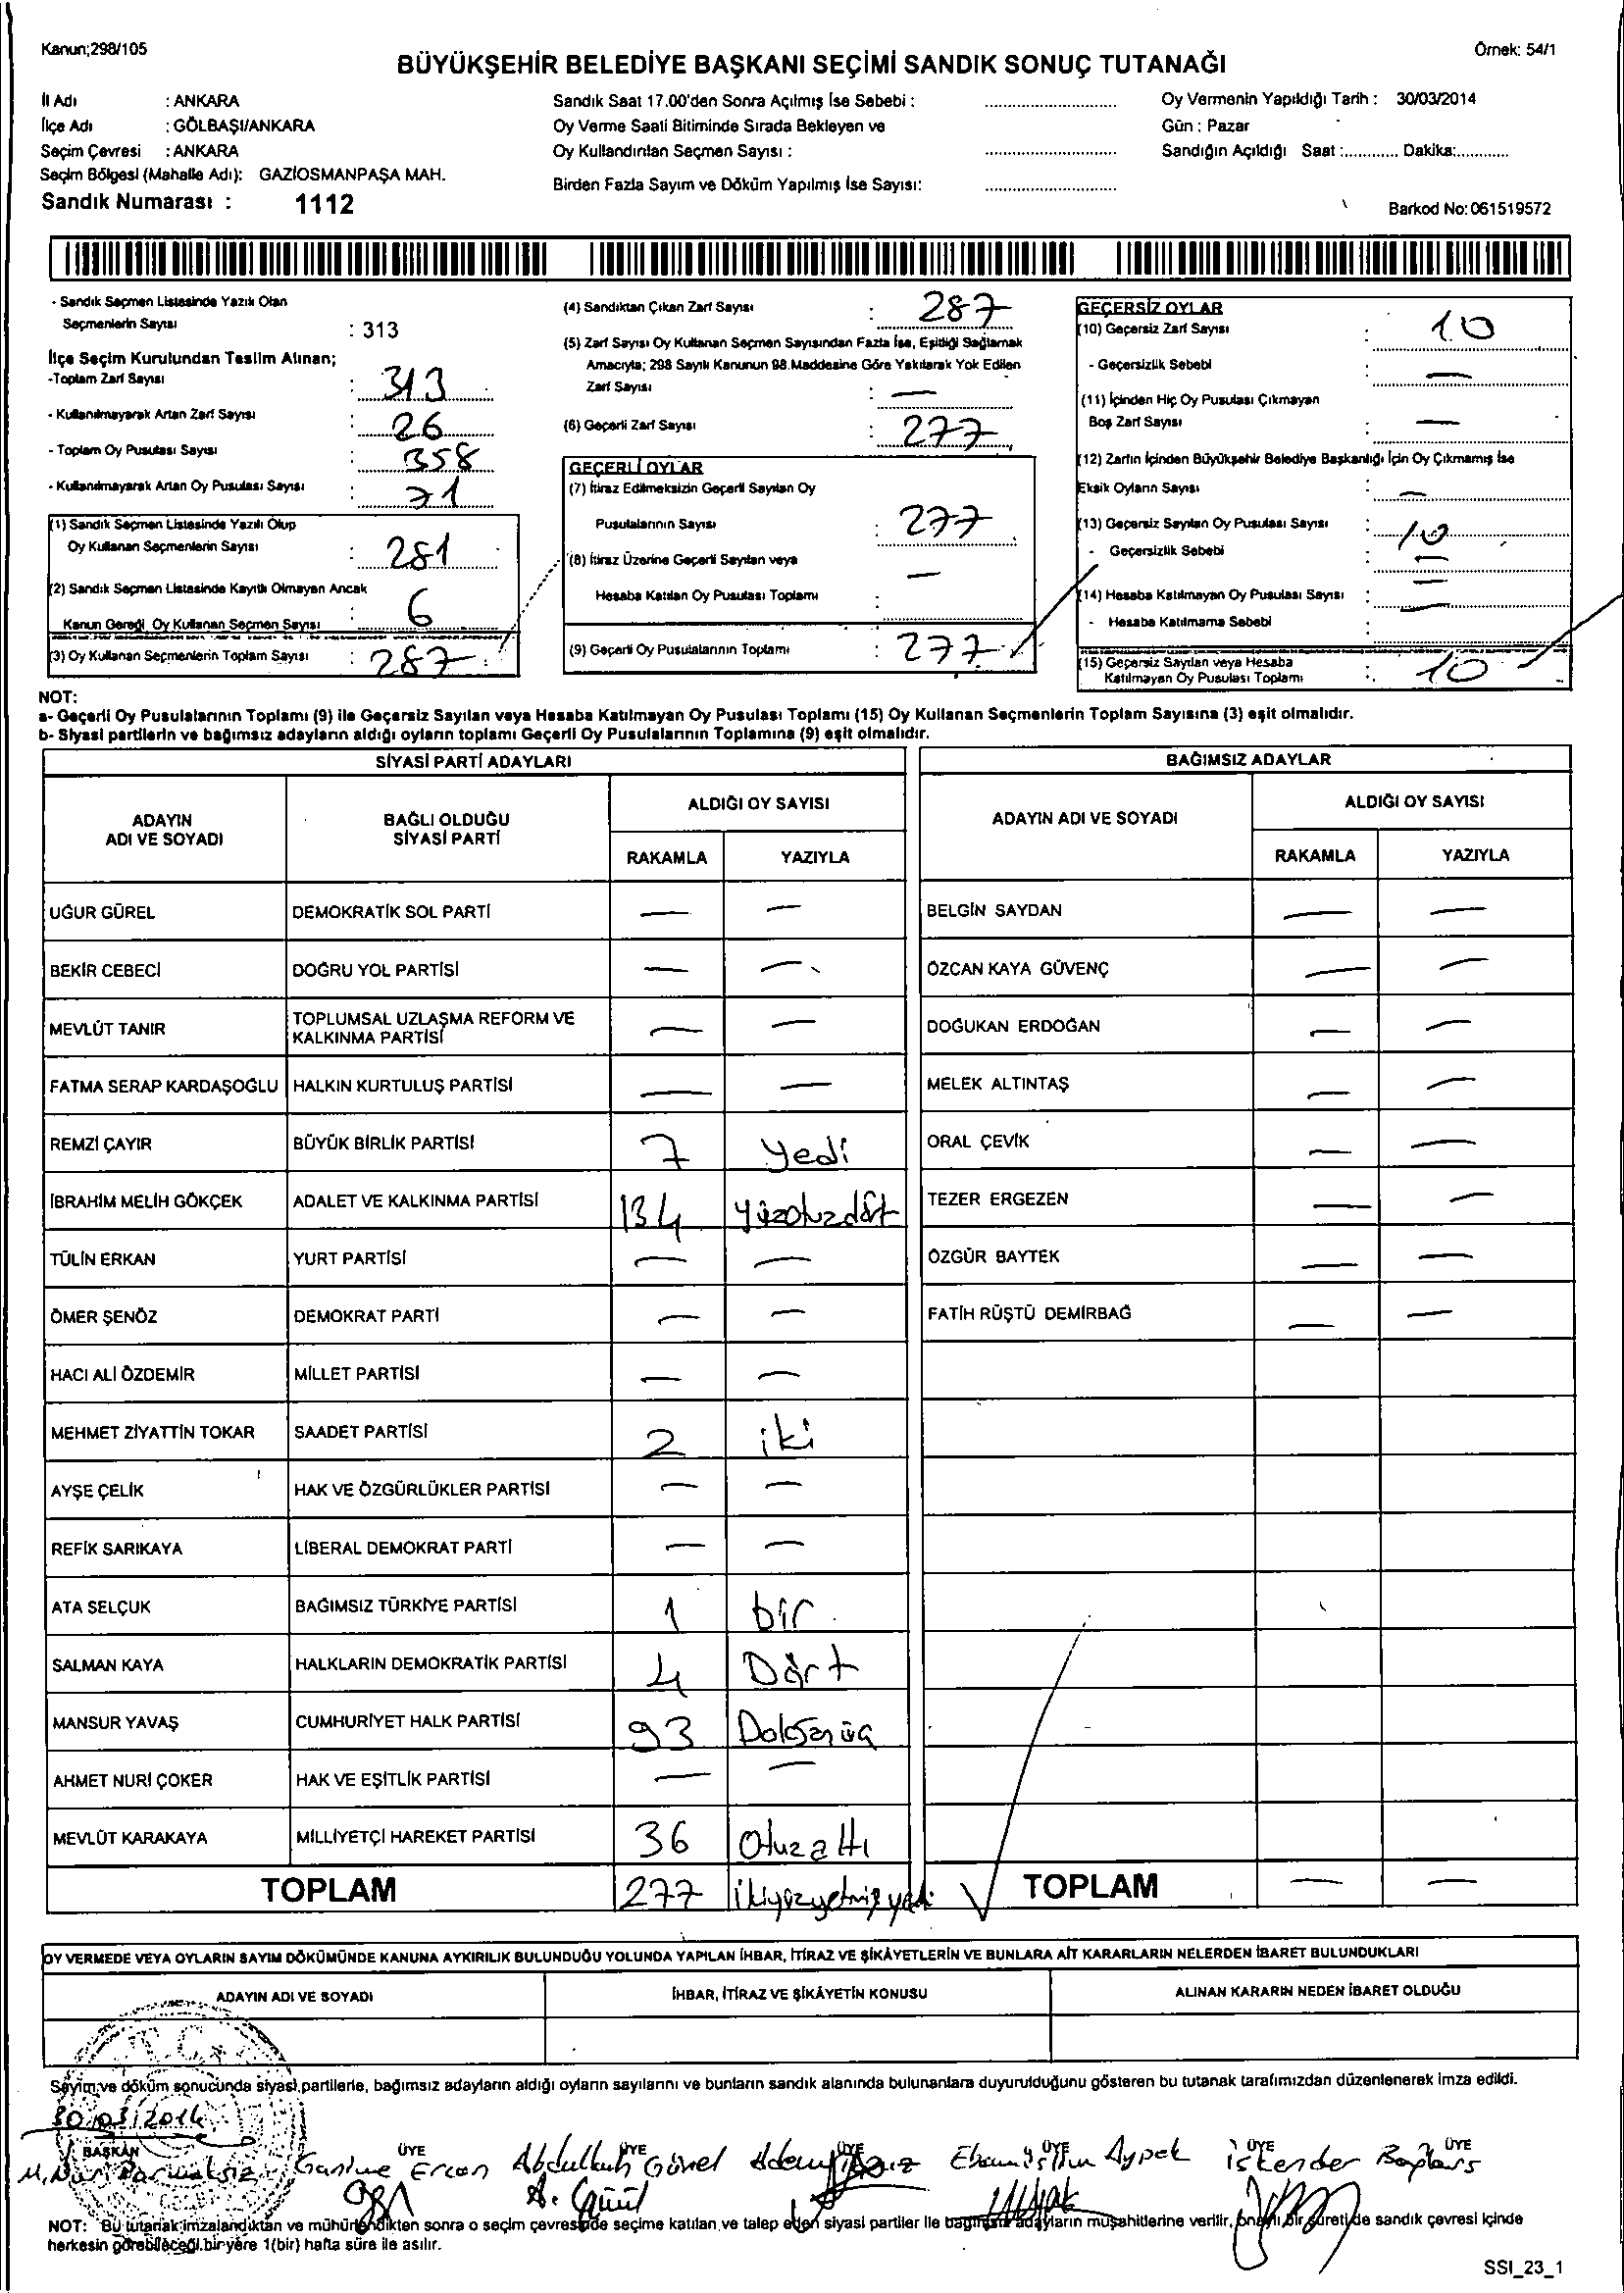 Kanun;298/105
Örnek: 54/1
BÜYÜKŞEHİR BELEDİYE BAŞKANI SEÇİMİ SANDIK SONUÇ TUTANAĞI
İl Adı : ANKARA
İlçe Adı : GÖLBAŞI/ANKARA
Seçim Çevresi : ANKARA
Seçim Bölgesi (Mahalle Adı): GAZİOSMANPAŞA MAH.
Sandık Numarası : 1112
Sandık Saat 17.00'den Sonra Açılmış İse Sebebi :
Oy Verme Saati Bitiminde Sırada Bekleyen ve
Oy Kullandırılan Seçmen Sayısı :
Birden Fazla Sayım ve Döküm Yapılmış İse Sayısı:
Oy Vermenin Yapıldığı Tarih : 30/03/2014
Gün : Pazar
Sandığın Açıldığı Saat :............ Dakika:............
Barkod No: 061519572
- Sandık Seçmen Listesinde Yazılı Olan
Seçmenlerin Sayısı : 313
İlçe Seçim Kurulundan Teslim Alınan;
-Toplam Zarf Sayısı : 313
- Kullanılmayarak Artan Zarf Sayısı : 26
- Toplam Oy Pusulası Sayısı : 358
- Kullanılmayarak Artan Oy Pusulası Sayısı : 71
(1) Sandık Seçmen Listesinde Yazılı Olup
Oy Kullanan Seçmenlerin Sayısı : 281
(2) Sandık Seçmen Listesinde Kayıtlı Olmayan Ancak
Kanun Gereği Oy Kullanan Seçmen Sayısı : 6
(3) Oy Kullanan Seçmenlerin Toplam Sayısı : 287
(4) Sandıktan Çıkan Zarf Sayısı : 287
(5) Zarf Sayısı Oy Kullanan Seçmen Sayısından Fazla İse, Eşitliği Sağlamak
Amacıyla; 298 Sayılı Kanunun 98.Maddesine Göre Yakılarak Yok Edilen
Zarf Sayısı : —
(6) Geçerli Zarf Sayısı : 277
GEÇERLİ OYLAR
(7) İtiraz Edilmeksizin Geçerli Sayılan Oy
Pusulalarının Sayısı : 277
(8) İtiraz Üzerine Geçerli Sayılan veya
Hesaba Katılan Oy Pusulası Toplamı : —
(9) Geçerli Oy Pusulalarının Toplamı : 277
GEÇERSİZ OYLAR
(10) Geçersiz Zarf Sayısı : 10
- Geçersizlik Sebebi : —
(11) İçinden Hiç Oy Pusulası Çıkmayan
Boş Zarf Sayısı : —
(12) Zarfın İçinden Büyükşehir Belediye Başkanlığı İçin Oy Çıkmamış İse
Eksik Oyların Sayısı : —
(13) Geçersiz Sayılan Oy Pusulası Sayısı : 10
- Geçersizlik Sebebi : —
(14) Hesaba Katılmayan Oy Pusulası Sayısı : —
- Hesaba Katılmama Sebebi : —
(15) Geçersiz Sayılan veya Hesaba
Katılmayan Oy Pusulası Toplamı : 10
NOT:
a- Geçerli Oy Pusulalarının Toplamı (9) ile Geçersiz Sayılan veya Hesaba Katılmayan Oy Pusulası Toplamı (15) Oy Kullanan Seçmenlerin Toplam Sayısına (3) eşit olmalıdır.
b- Siyasi partilerin ve bağımsız adayların aldığı oyların toplamı Geçerli Oy Pusulalarının Toplamına (9) eşit olmalıdır.
SİYASİ PARTİ ADAYLARI
ADAYIN ADI VE SOYADI
BAĞLI OLDUĞU SİYASİ PARTİ
ALDIĞI OY SAYISI
RAKAMLA YAZIYLA
UĞUR GÜREL DEMOKRATİK SOL PARTİ — —
BEKİR CEBECİ DOĞRU YOL PARTİSİ — —
MEVLÜT TANIR TOPLUMSAL UZLAŞMA REFORM VE KALKINMA PARTİSİ — —
FATMA SERAP KARDAŞOĞLU HALKIN KURTULUŞ PARTİSİ — —
REMZİ ÇAYIR BÜYÜK BİRLİK PARTİSİ 7 yedi
İBRAHİM MELİH GÖKÇEK ADALET VE KALKINMA PARTİSİ 134 yüzotuzdört
TÜLİN ERKAN YURT PARTİSİ — —
ÖMER ŞENÖZ DEMOKRAT PARTİ — —
HACI ALİ ÖZDEMİR MİLLET PARTİSİ — —
MEHMET ZİYATTİN TOKAR SAADET PARTİSİ 2 iki
AYŞE ÇELİK HAK VE ÖZGÜRLÜKLER PARTİSİ — —
REFİK SARIKAYA LİBERAL DEMOKRAT PARTİ — —
ATA SELÇUK BAĞIMSIZ TÜRKİYE PARTİSİ 1 bir
SALMAN KAYA HALKLARIN DEMOKRATİK PARTİSİ 4 Dört
MANSUR YAVAŞ CUMHURİYET HALK PARTİSİ 93 Doksanüç
AHMET NURİ ÇOKER HAK VE EŞİTLİK PARTİSİ — —
MEVLÜT KARAKAYA MİLLİYETÇİ HAREKET PARTİSİ 36 Otuzaltı
TOPLAM 277 ikiyüzyetmişyedi
BAĞIMSIZ ADAYLAR
ADAYIN ADI VE SOYADI
ALDIĞI OY SAYISI
RAKAMLA YAZIYLA
BELGİN SAYDAN — —
ÖZCAN KAYA GÜVENÇ — —
DOĞUKAN ERDOĞAN — —
MELEK ALTINTAŞ — —
ORAL ÇEVİK — —
TEZER ERGEZEN — —
ÖZGÜR BAYTEK — —
FATİH RÜŞTÜ DEMİRBAĞ — —
TOPLAM — —
OY VERMEDE VEYA OYLARIN SAYIM DÖKÜMÜNDE KANUNA AYKIRILIK BULUNDUĞU YOLUNDA YAPILAN İHBAR, İTİRAZ VE ŞİKÂYETLERİN VE BUNLARA AİT KARARLARIN NELERDEN İBARET BULUNDUKLARI
ADAYIN ADI VE SOYADI İHBAR, İTİRAZ VE ŞİKÂYETİN KONUSU ALINAN KARARIN NEDEN İBARET OLDUĞU
Sayım ve döküm sonucunda siyasi partilerle, bağımsız adayların aldığı oyların sayılarını ve bunların sandık alanında bulunanlara duyurulduğunu gösteren bu tutanak tarafımızdan düzenlenerek imza edildi.
30/03/2014
BAŞKAN ÜYE ÜYE ÜYE ÜYE ÜYE ÜYE
M. Nuri Ercan Abdullah Gönel Adem Aypek İskender
A. Gönel
NOT: Bu tutanak imzalandıktan ve mühürlendikten sonra o seçim çevresinde seçime katılan ve talep eden siyasi partiler ile bağımsız adayların müşahitlerine verilir, onaylı bir sureti de sandık çevresi içinde
herkesin görebileceği bir yere 1(bir) hafta süre ile asılır.
SSI_23_1